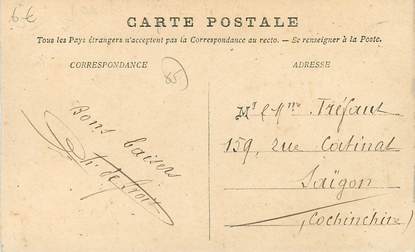 6€
CARTE POSTALE
Tous les Pays étrangers n'acceptent pas la Correspondance au recto. — Se renseigner à la Poste.
CORRESPONDANCE
85
ADRESSE
Bons baisers
Mr & Mme Tréfaut
159, rue Catinat
Saïgon
(Cochinchine)